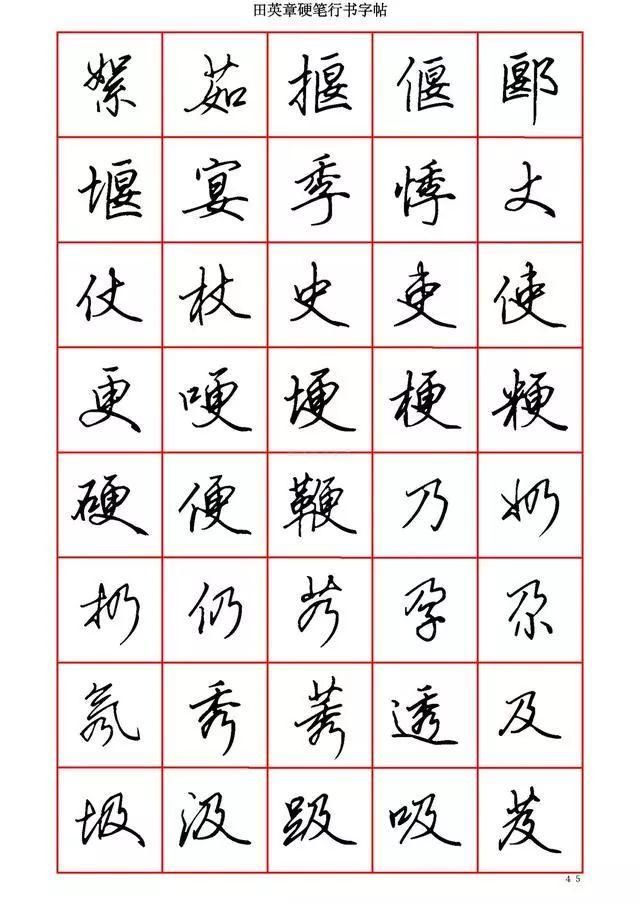 田英章硬笔行书字帖
絮茹揠偃郾
堰宴季悸丈
仗杖史吏使
更哽埂梗粳
硬便鞭乃奶
扔仍艿孕尕
氖秀莠透及
圾汲趿吸芨
45